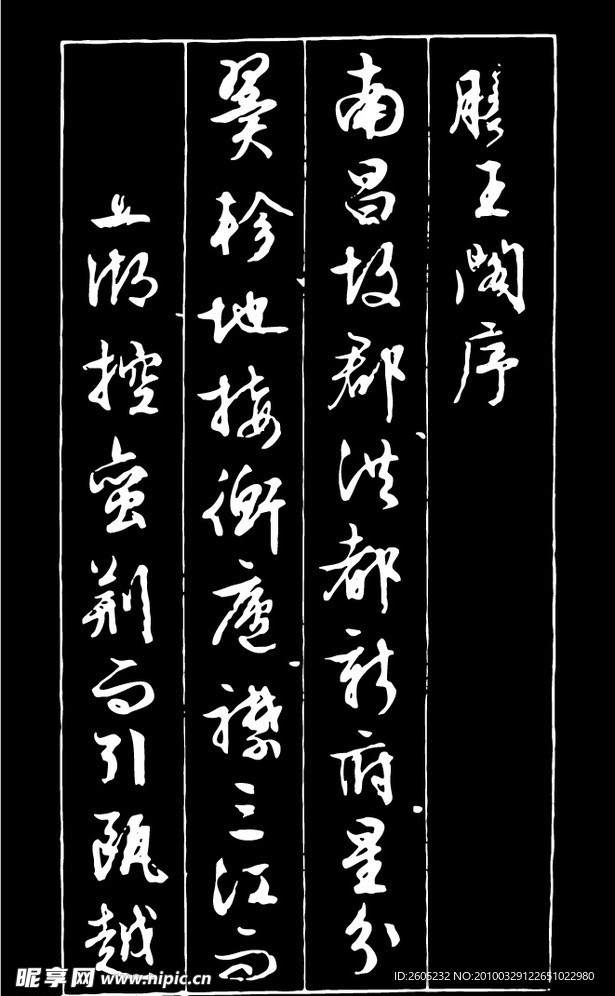 滕王閣序
南昌故郡洪都新府星分
翼軫地接衡廬襟三江而
五湖控蠻荊而引甌越
昵享网 www.nipic.cn
ID:2605232 NO:20100329122651022980